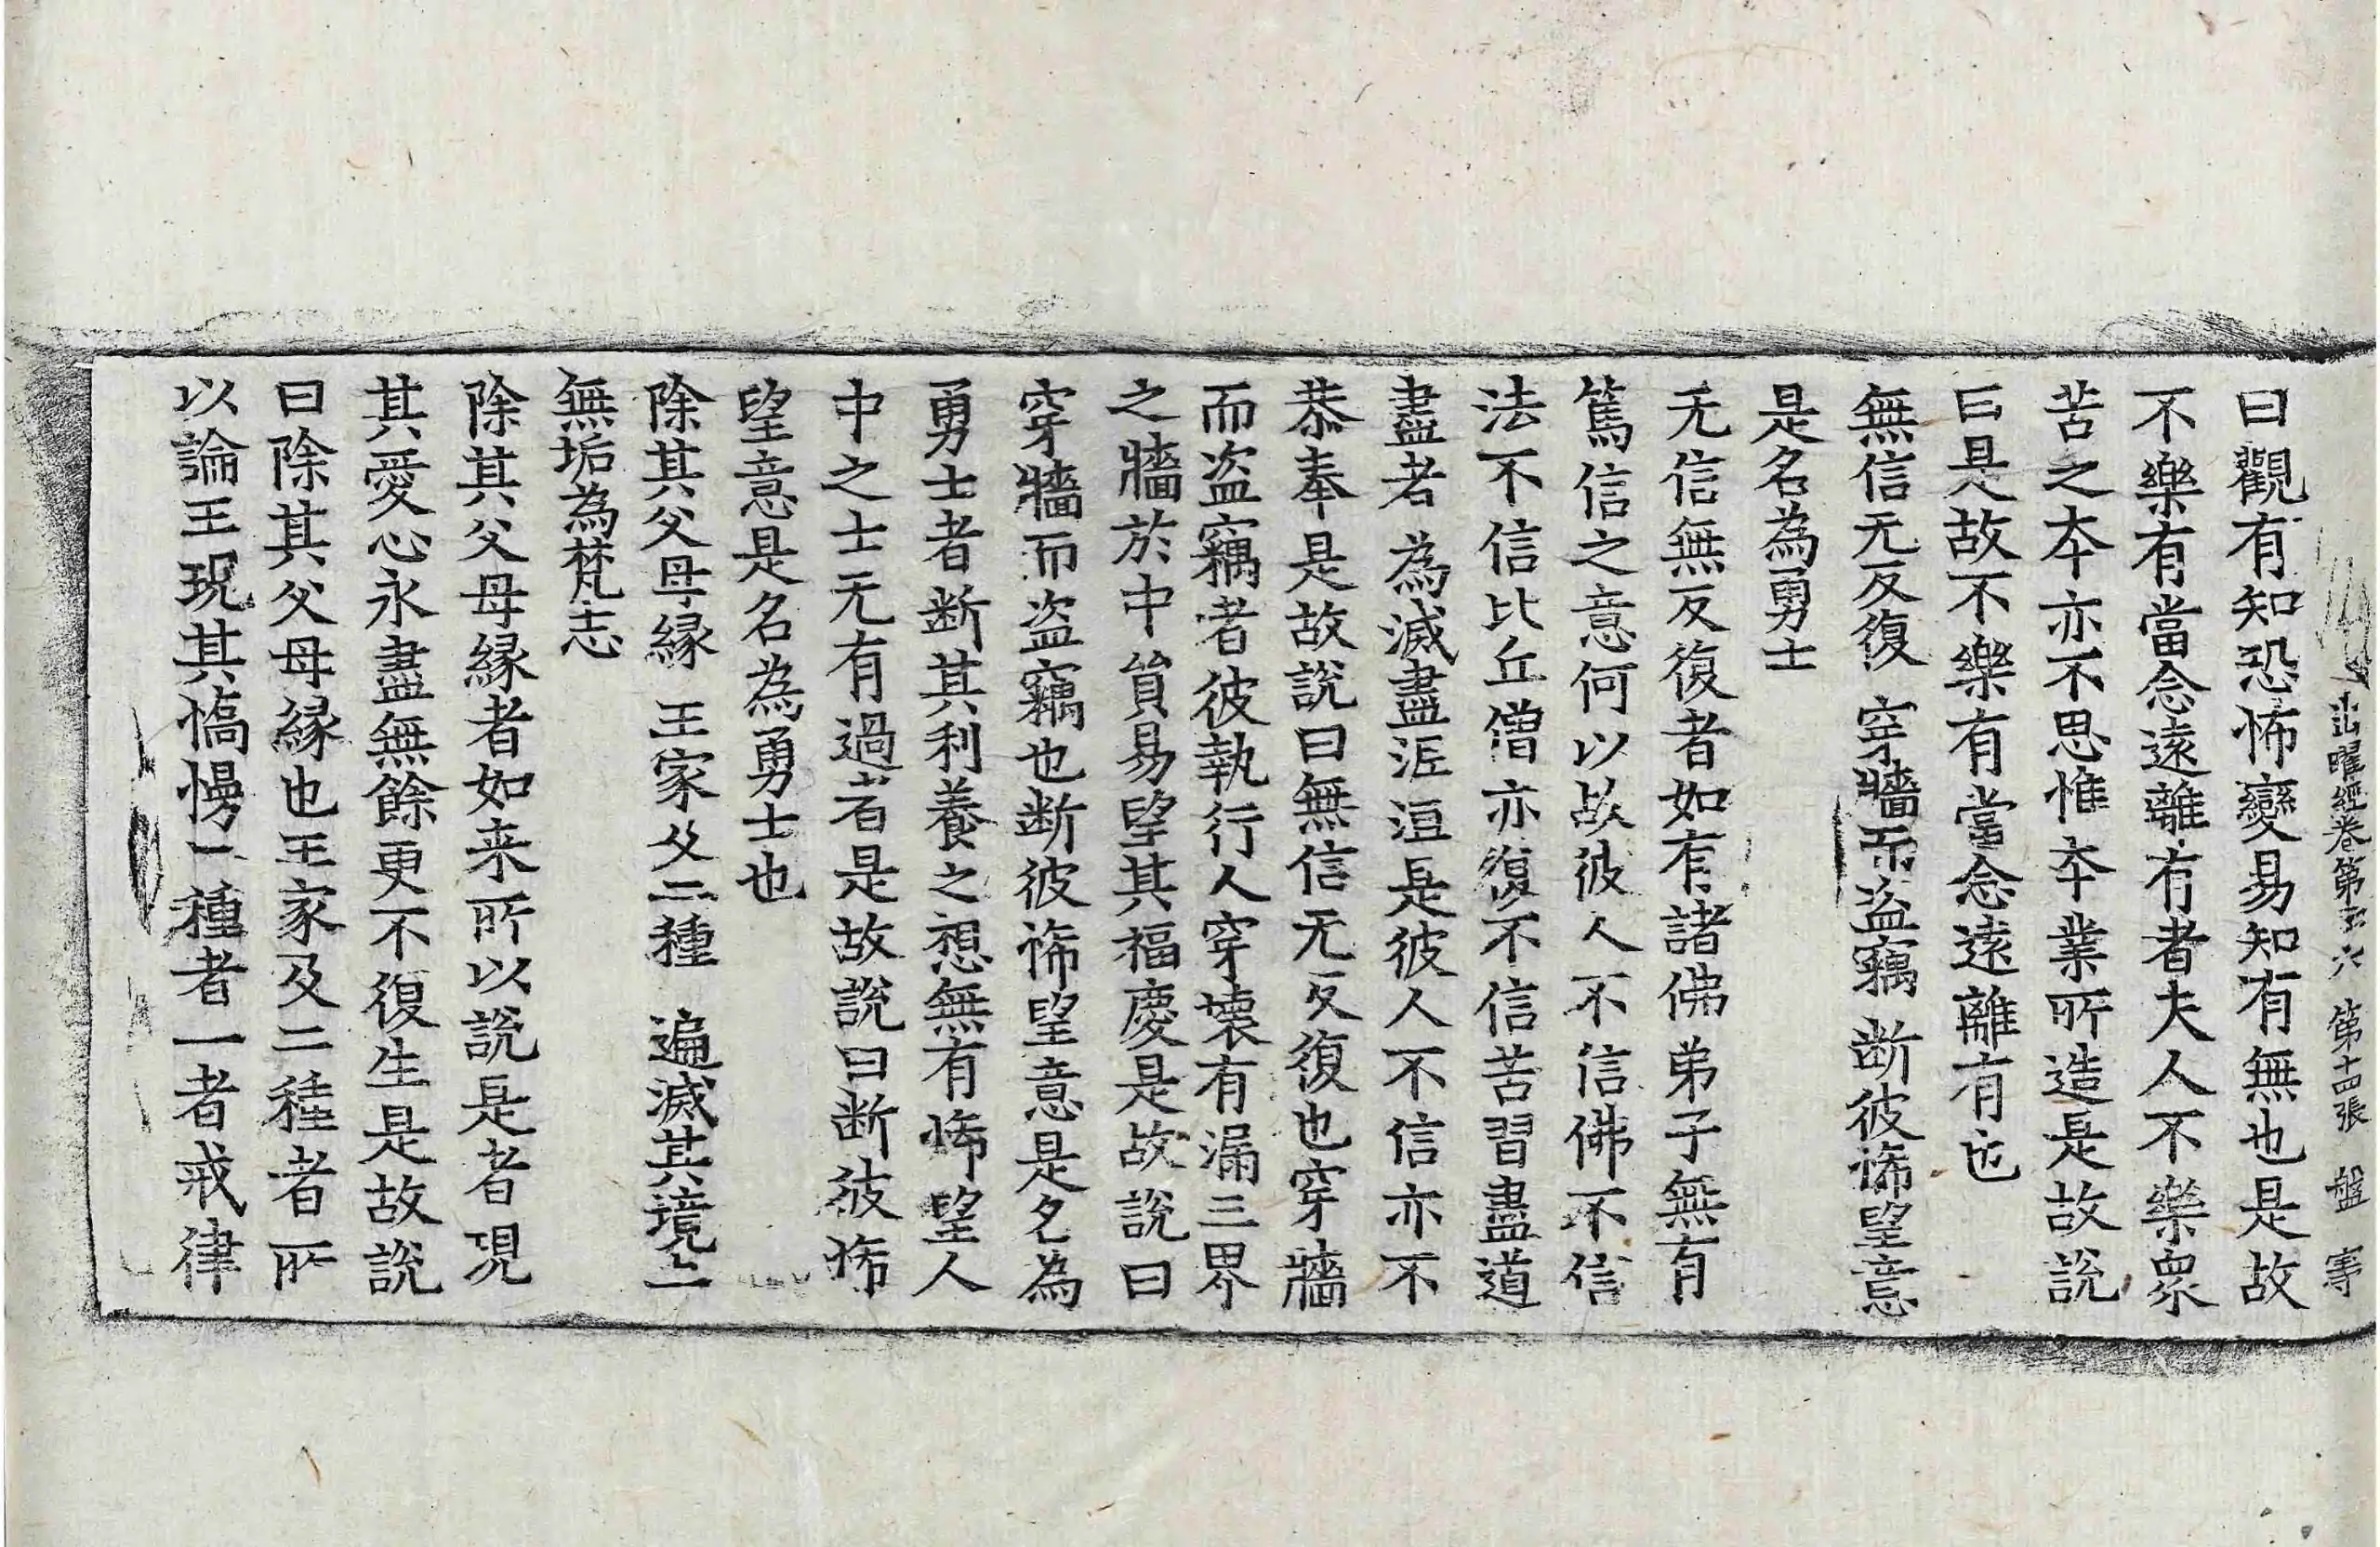 出曜經卷第六 第十四張 盤
曰觀有知恐怖變易知有無也是故
不樂有當念遠離有者夫人不樂衆
苦之本亦不思惟本業所造是故說
曰是故不樂有當念遠離有也
無信无反復 穿牆而盜竊 斷彼悕望意
是名為勇士
无信無反復者如有諸佛弟子無有
篤信之意何以故彼人不信佛不信
法不信比丘僧亦復不信苦習盡道
盡者為滅盡泥洹是彼人不信亦不
恭奉是故說曰無信无反復也穿牆
而盜竊者彼執行人穿壞有漏三界
之牆於中貿易望其福慶是故說曰
穿牆而盜竊也断彼悕望意是名為
勇士者断其利養之想無有悕望人
中之士无有過者是故說曰断彼悕
望意是名為勇士也
除其父母緣 王家及二種 遍滅其境土
無垢為梵志
除其父母緣者如来所以說是者現
其愛心永盡無餘更不復生是故說
曰除其父母緣也王家及二種者所
以論王現其憍慢二種者一者戒律